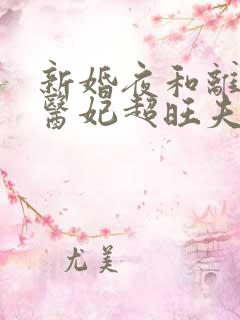 新婚夜和離
醫妃超旺夫
尤美